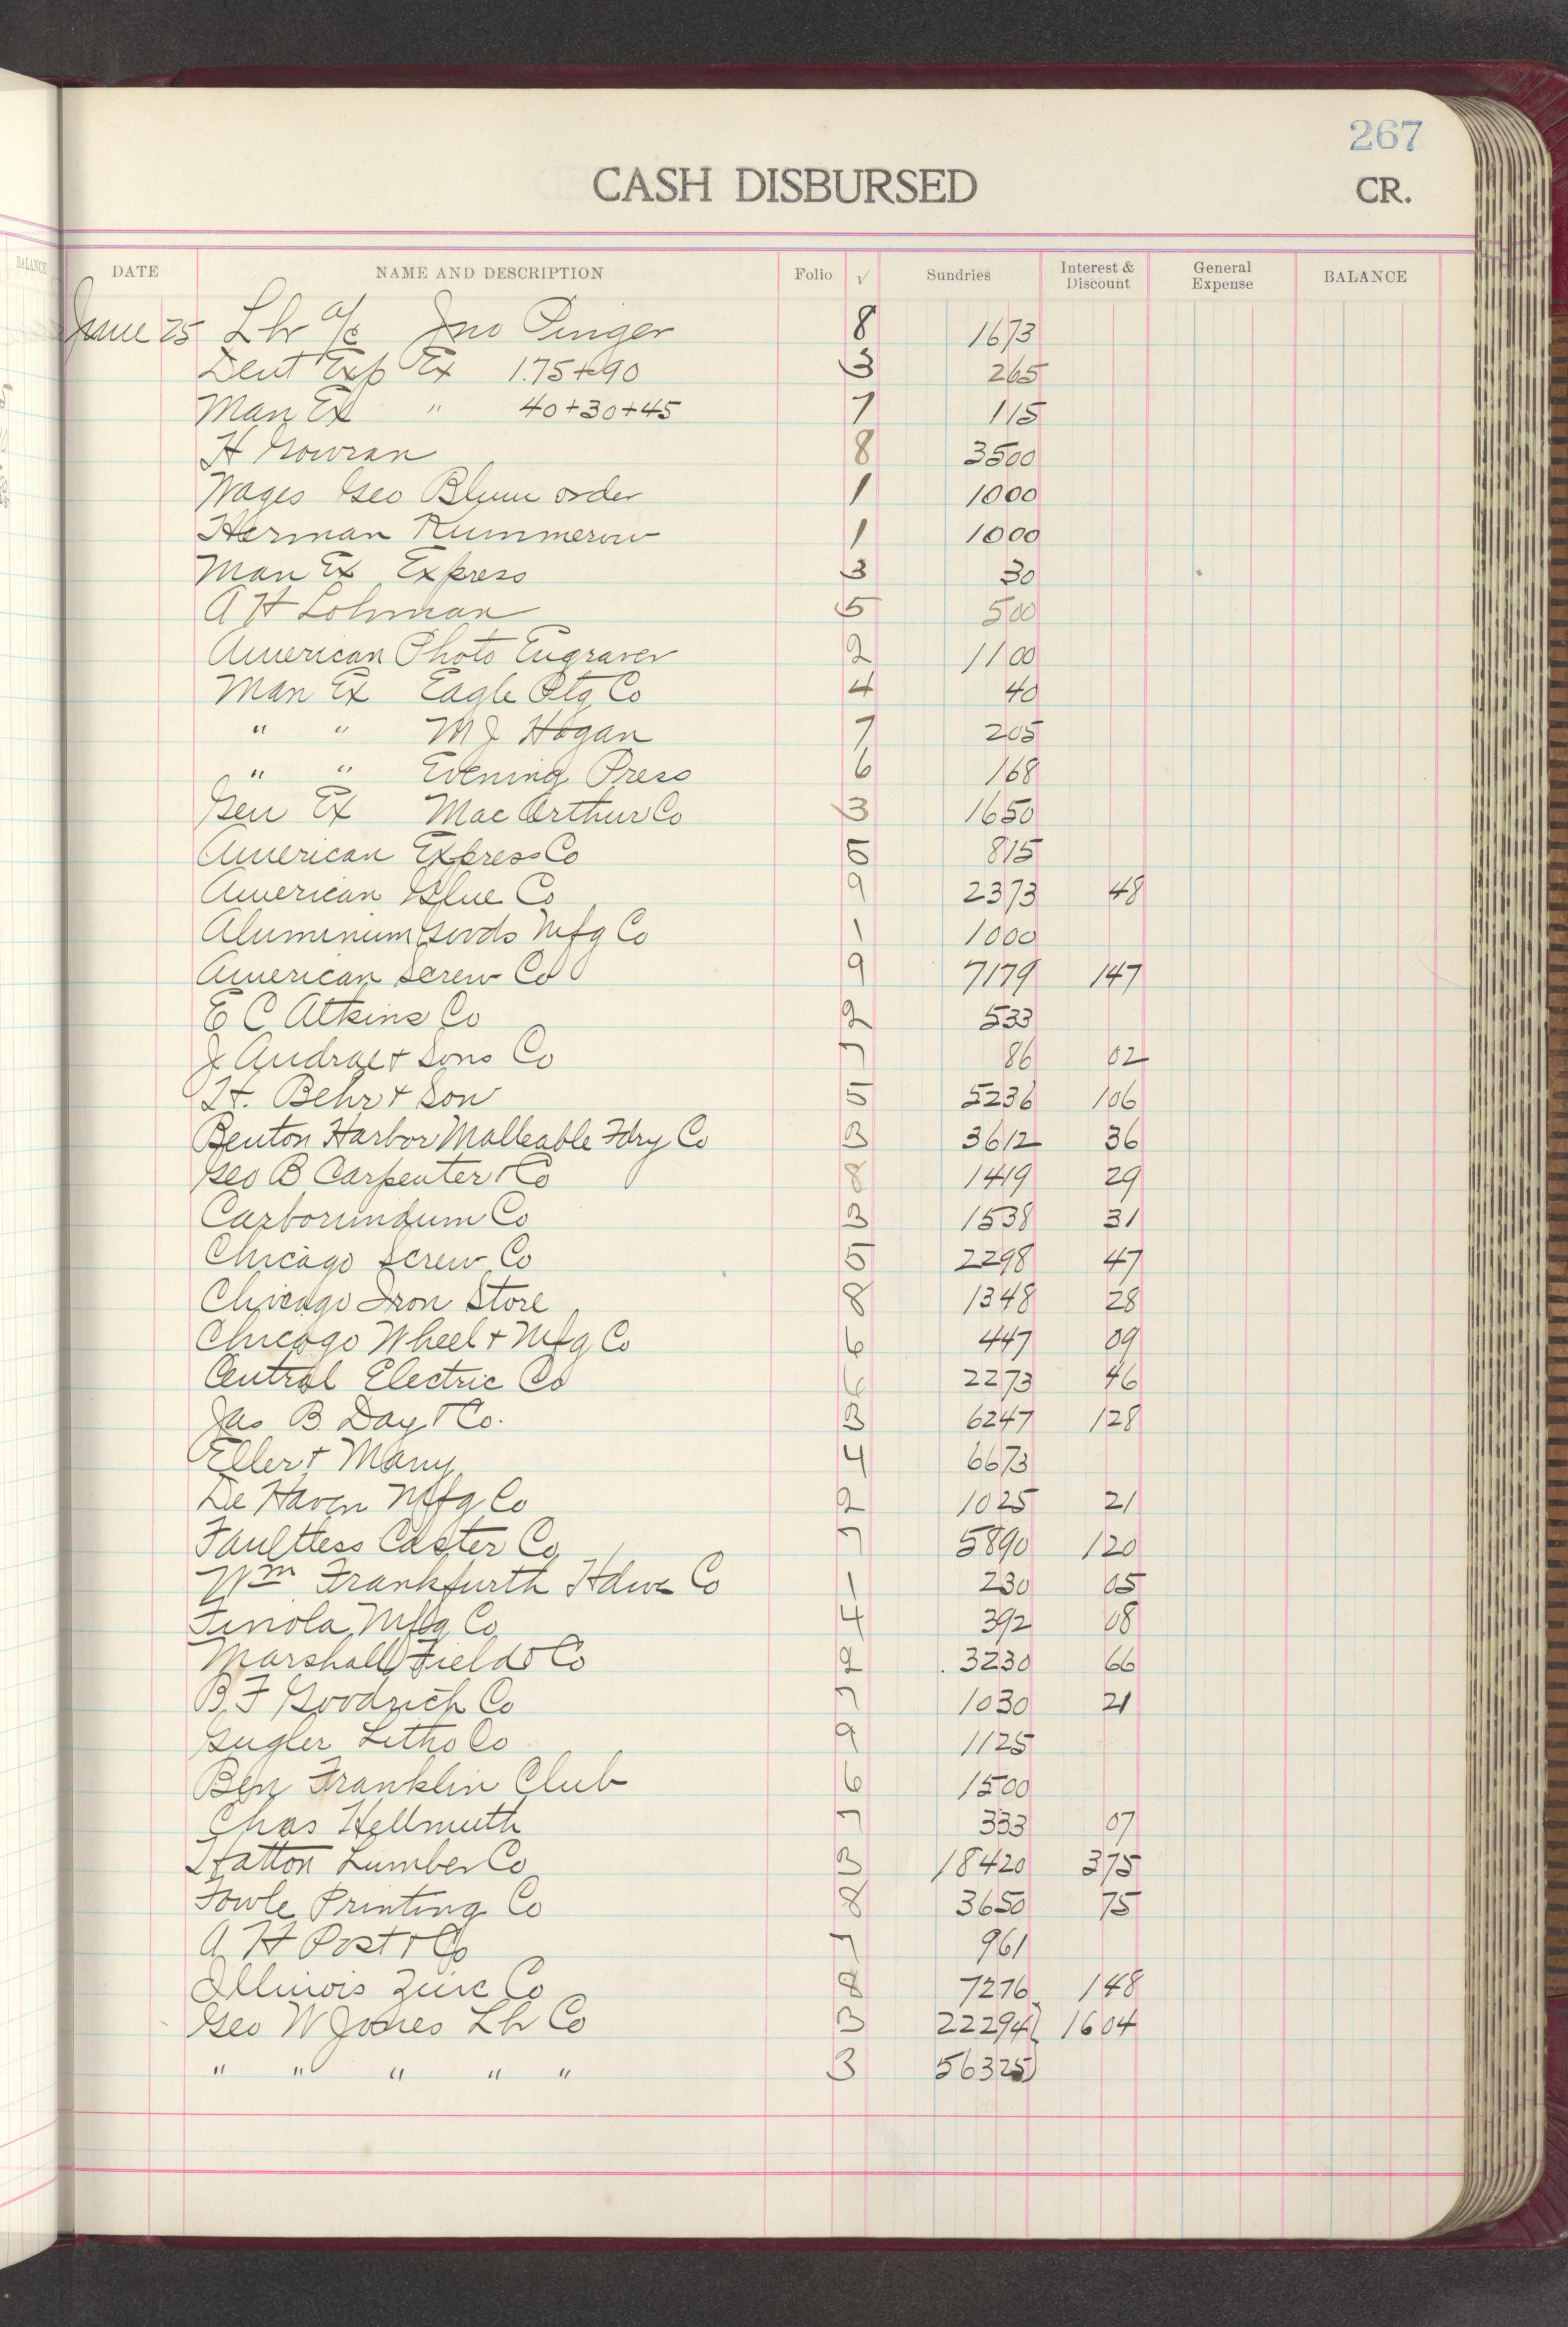 267
CASH DISBURSED CR.
BALANCE
DATE NAME AND DESCRIPTION Folio √ Sundries Interest & Discount General Expense BALANCE
June 25 Lbr a/c Jno Pinger 8 1673
Dent Exp Ex 1.75+90 3 265
Man Ex " 40+30+45 7 115
H Gowran 8 3500
Wages Geo Blum order 1 1000
Herman Kummerow 1 1000
Man Ex Express 3 30
A H Lohman 5 500
American Photo Engraver 2 1100
Man Ex Eagle Ptg Co 4 40
" " M J Hogan 7 205
" " Evening Press 6 168
Gen Ex Mac Arthur Co 3 1650
American Express Co 5 815
American Glue Co 9 2373 48
Aluminum Goods Mfg Co 1 1000
American Screw Co 9 7179 147
E C Atkins Co 2 533
J Andrae + Sons Co 7 86 02
H. Behr + Son 5 5236 106
Benton Harbor Malleable Fdry Co 3 3612 36
Geo B Carpenter + Co 8 1419 29
Carborundum Co 3 1538 31
Chicago Screw Co 5 2298 47
Chicago Iron Store 8 1348 28
Chicago Wheel + Mfg Co 6 447 09
Central Electric Co 6 2273 46
Jas B Day + Co. 3 6247 128
Eller + Many 4 6673
De Haven Mfg Co 2 1025 21
Faultless Caster Co 7 5890 120
Wm Frankfurth Hdwe Co 1 230 05
Finola Mfg Co 4 392 08
Marshall Field + Co 2 3230 66
B F Goodrich Co 7 1030 21
Gugler Litho Co 9 1125
Ben Franklin Club 6 1500
Chas Hellmuth 7 333 07
Hatton Lumber Co 3 18420 375
Fowle Printing Co 8 3650 75
A H Post + Co 7 961
Illinois Zinc Co 8 7276 148
Geo W Jones Lbr Co 3 22294 1604
" " " " " 3 56325